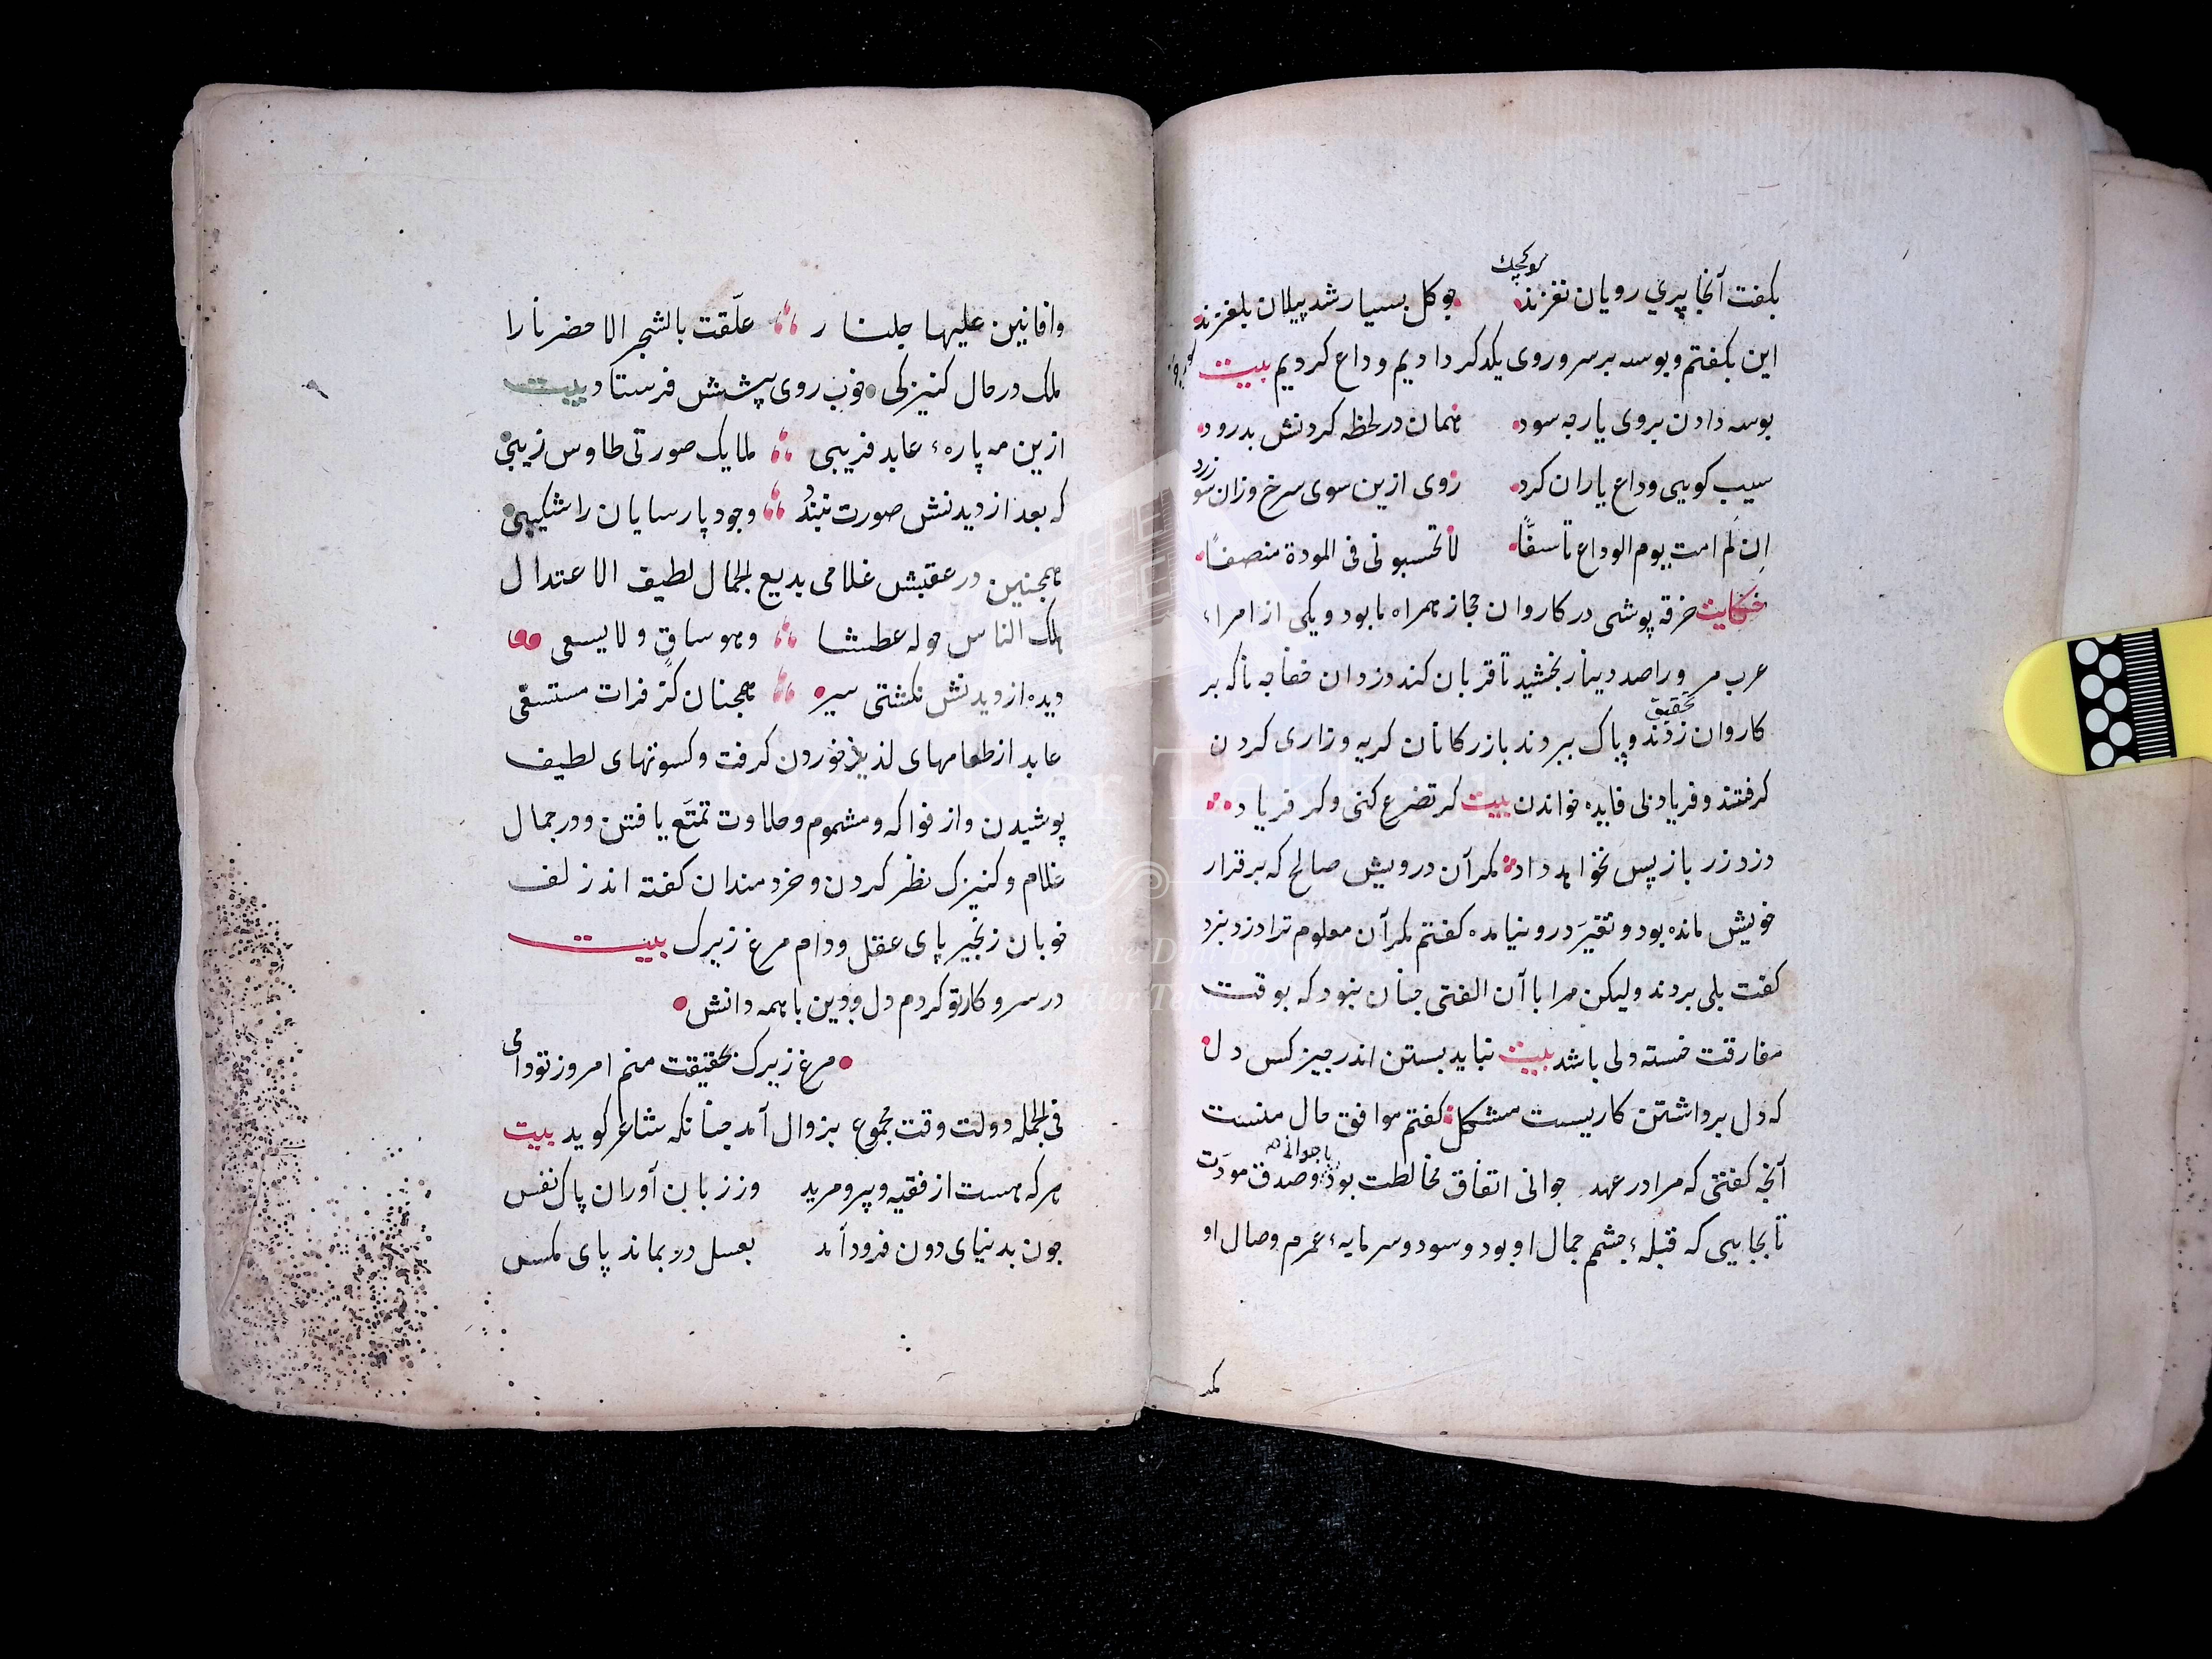 بكفت آنجا پري رويان نغزند جو كل بسيار شد پيلان بلغزند
اين بكفتم و بوسه بر سر و روى يكدكر داديم و وداع كرديم بيت
بوسه دادن بروى يار جه سود همان در لحظه كردنش بدرود
سيب كويى وداع ياران كرد روى ازين سوى سرخ وزان سو زرد
اِن لَم امت يوم الوداع تأسفًا لا تحسبونى فى المودة منصفًا
حكايت خرقه پوشى در كاروان حجاز همراه ما بود و يكى از امراء
عرب مر ورا صد دينار بخشيد تا قربان كند دزدان خفاجه ناكه بر
كاروان زدند و پاك ببردند بازركانان كريه و زارى كردن
كرفتند و فرياد بى فايده خواندن بيت كر تضرع كنى و كر فرياد
دزد زر باز پس نخواهد داد مكر آن درويش صالح كه بر قرار
خويش مانده بود و تغير درو نيامده كفتم مكر آن معلوم ترا دزد نبرد
كفت بلى بردند وليكن مرا با آن الفتى جنان نبود كه بوقت
مفارقت خسته دلى باشد بيت نبايد بستن اندر جيز كس دل
كه دل برداشتن كاريست مشكل كفتم موافق حال منست
آنجه كفتى كه مرا در عهد جوانى با جوانى اتفاق مخالطت بود و صدق مودت
تا بجايى كه قبلهٔ جشم جمال او بود و سود و سرمايهٔ عمرم وصال او
وافانين عليها جلنار علّقت بالشجر الاخضر نارا
ملك در حال كنيزكى خوب روى پيشش فرستاد بيت
ازين مه پارهٔ عابد فريبى ملايك صورتى طاوس زيبى
كه بعد از ديدنش صورت نبندد وجود پارسايان را شكيبى
همجنين در عقبش غلامى بديع الجمال لطيف الاعتدال
هلك الناس حوله عطشا وهو ساقٍ ولا يسقى
ديده از ديدنش نكشتى سير همجنان كز فرات مستسقى
عابد از طعامهاى لذيذ خوردن كرفت و كسوتهاى لطيف
پوشيدن و از فواكه و مشموم و حلاوت تمتّع يافتن و در جمال
غلام و كنيزك نظر كردن و خردمندان كفته اند زلف
خوبان زنجير پاى عقل و دام مرغ زيرك بيت
در سر و كار تو كردم دل و دين با همه دانش
مرغ زيرك بحقيقت منم امروز تو دامى
فى الجمله دولت وقت مجموع بزوال آمد جنانكه شاعر كويد بيت
هر كه هست از فقيه و پير و مريد وز زبان آوران پاك نفس
جون بدنياى دون فرود آمد بعسل در بماند پاى مكس